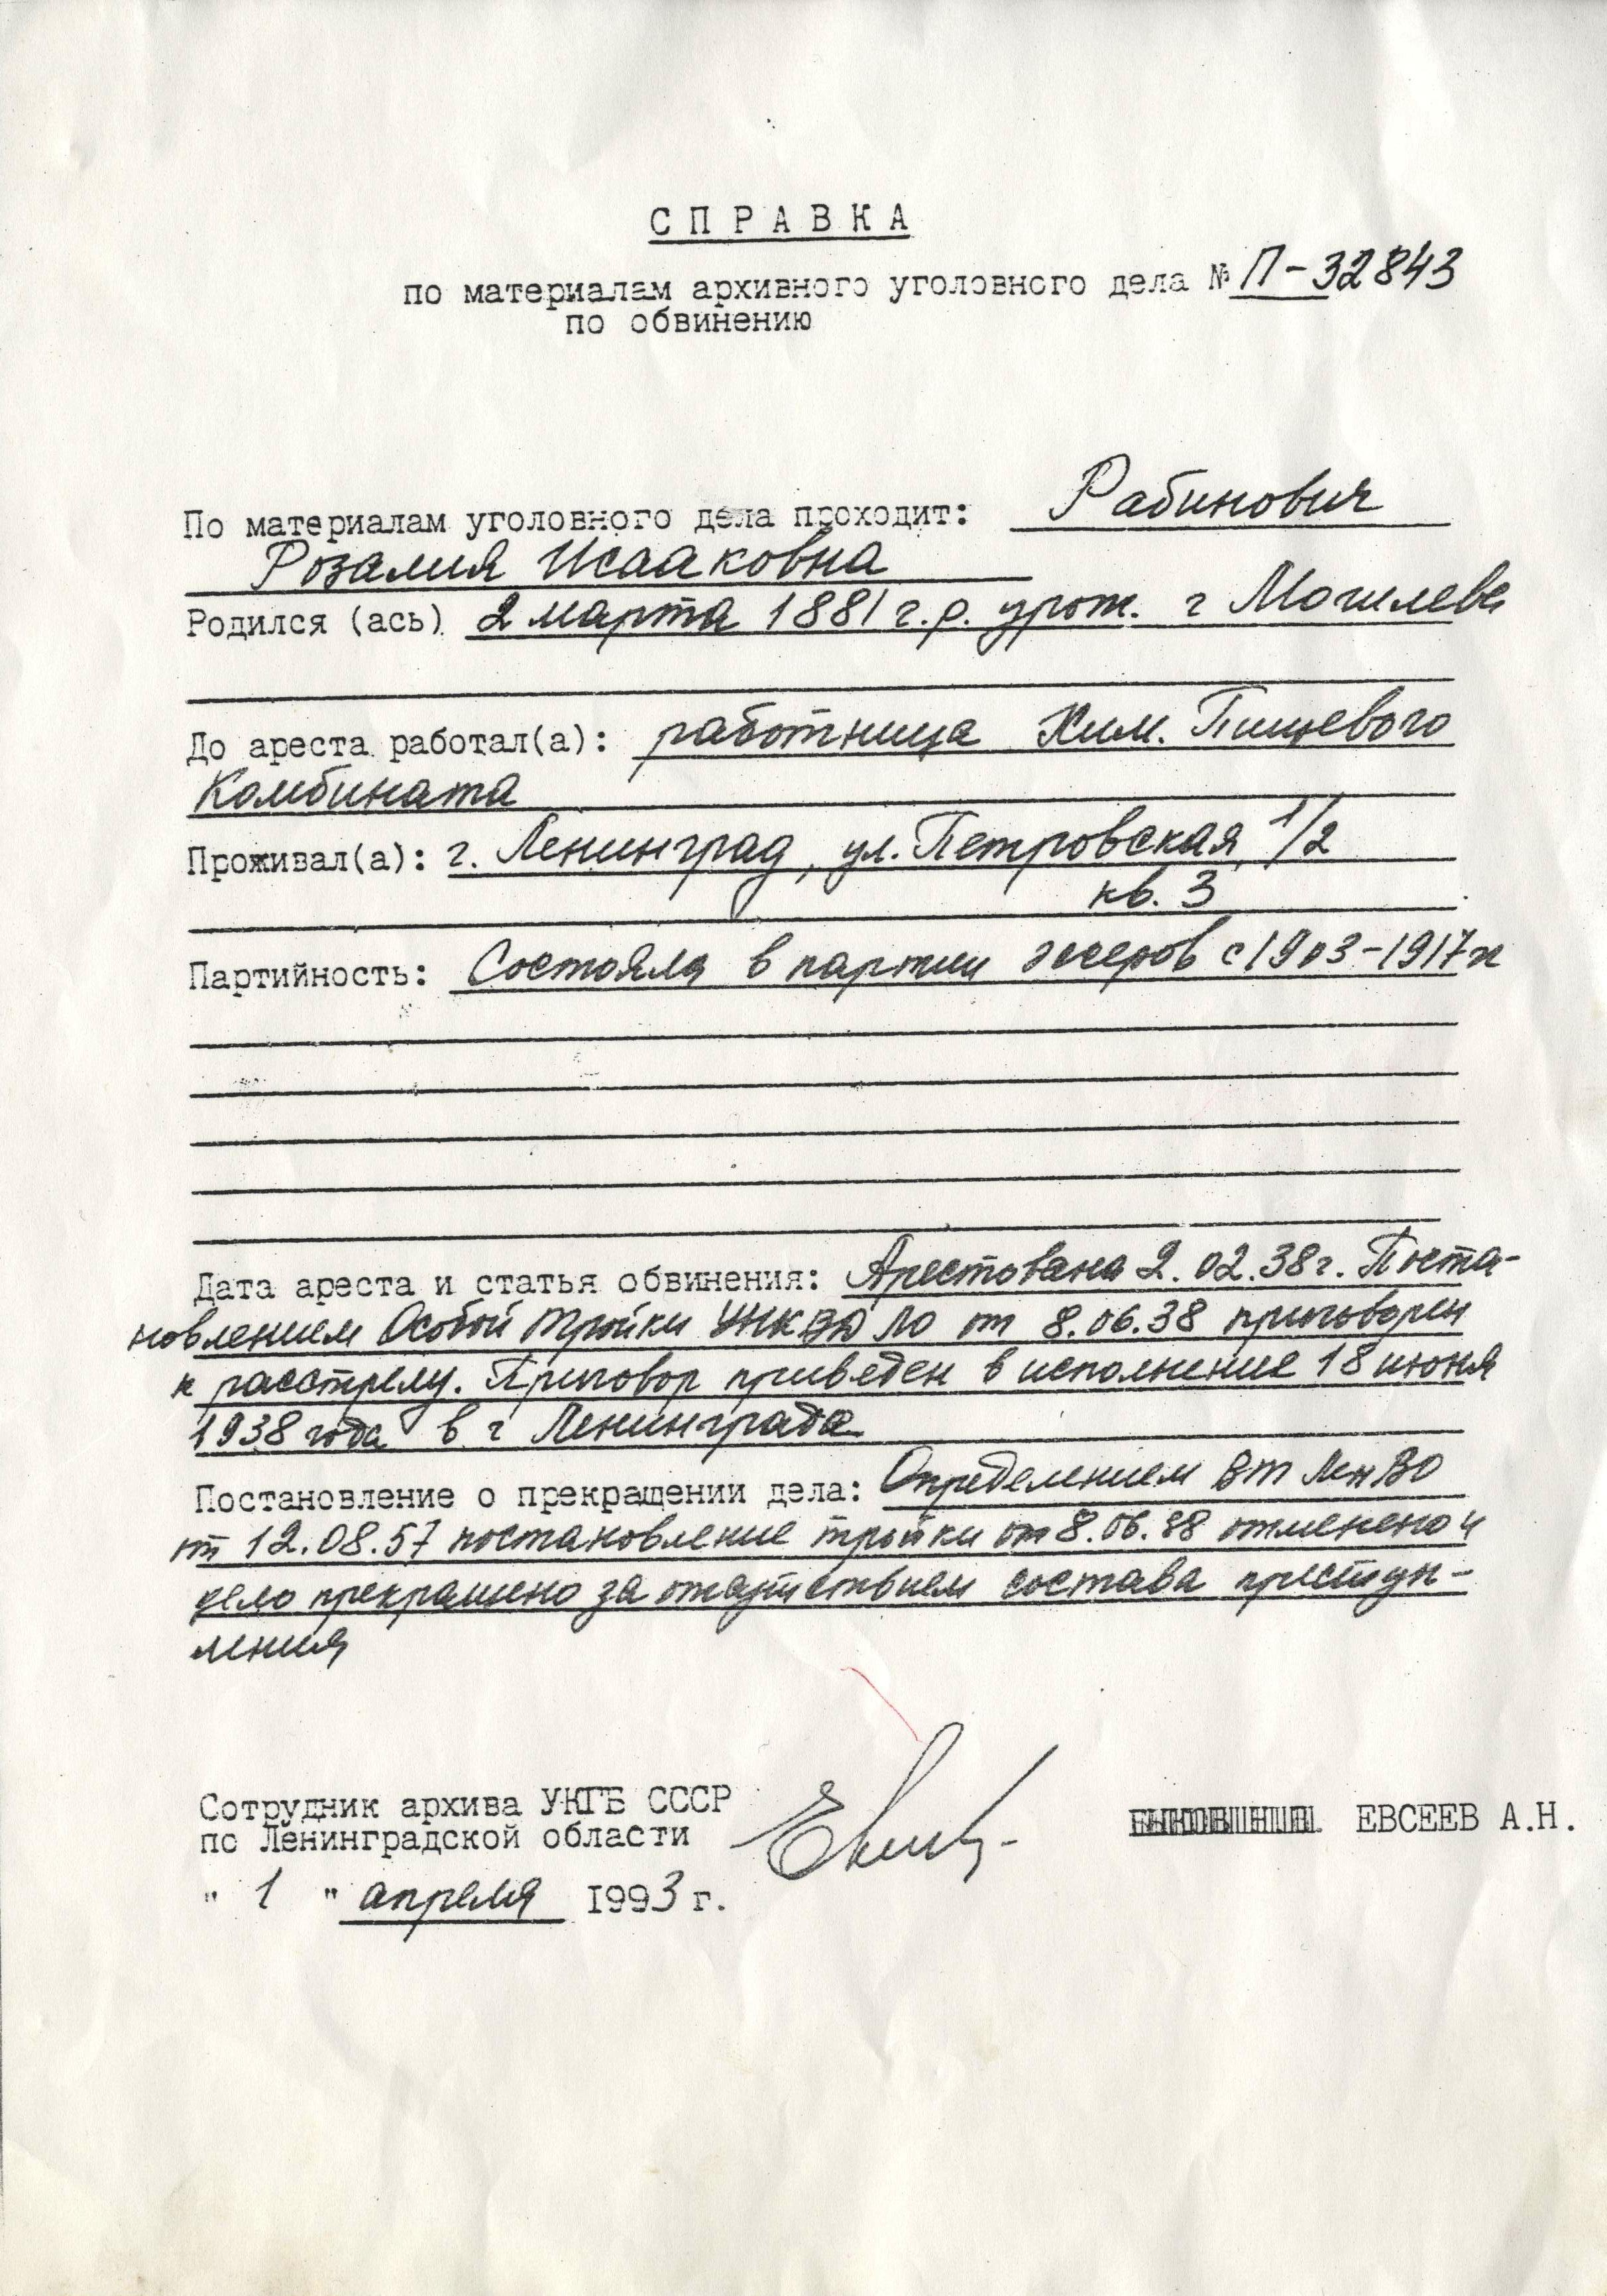 СПРАВКА
по материалам архивного уголовного дела № П-32843
по обвинению
По материалам уголовного дела проходит: Рабинович
Розалия Исааковна
Родился (ась) 2 марта 1881 г.р. урож. г Могилева
До ареста работал(а): работница Хим. Пищевого
Комбината
Проживал(а): г. Ленинград, ул. Петровская 1/2
кв. 3
Партийность: Состояла в партии эсеров с 1903-1917
Дата ареста и статья обвинения: Арестована 2.02.38г. Поста-
новлением Особой тройки УНКВД ЛО от 8.06.38 приговорен
к расстрелу. Приговор приведен в исполнение 18 июня
1938 года в г Ленинграде
Постановление о прекращении дела: Определением ВТ ЛенВО
от 12.08.57 постановление тройки от 8.06.38 отменено и
дело прекращено за отсутствием состава преступ-
ления
Сотрудник архива УКГБ СССР
по Ленинградской области
ЕВСЕЕВ А.Н.
" 1 " апреля 1993 г.